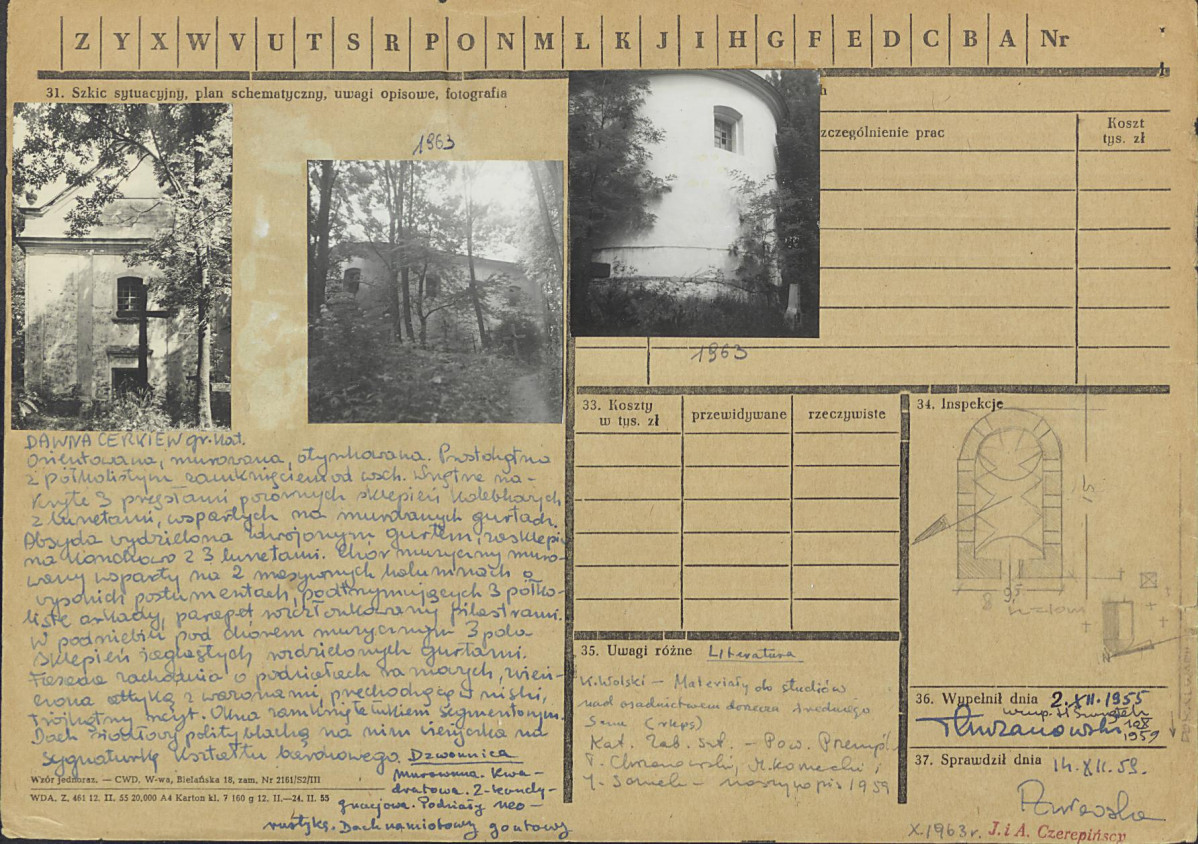 Z Y X W V U T S R P O N M L K J I H G F E D C B A Nr
1
31. Szkic sytuacyjny, plan schematyczny, uwagi opisowe, fotografia
h
zczególnienie prac
Koszt
tys. zł
1963
1963
DAWNA CERKIEW gr. kat.
Orientowana, murowana, otynkowana. Prostokątna
z półkolistym zamknięciem od wsch. Wnętrze na-
kryte 3 przęsłami pozornych sklepień kolebkowych
z lunetami, wspartych na murowanych gurtach.
Absyda wydzielona zdwojonym gurtem, zasklepio
na konchowo z 3 lunetami. Chór muzyczny muro-
wany wsparty na 2 masywnych kolumnach o
wysokich postumentach, podtrzymujących 3 półko-
liste arkady, parapet rozczłonkowany pilastrami.
W podniebiu pod chórem muzycznym 3 pola
sklepień żaglastych rozdzielonych gurtami.
Fasada zachodnia o podziałach ramowych, wień-
czona attyką z wazonami, przechodzącą w niski,
trójkątny szczyt. Okna zamknięte łukiem segmentowym.
Dach siodłowy polity blachą na nim wieżyczka na
sygnaturkę kształtu barokowego. Dzwonnica
Murowana. Kwa-
dratowa. 2-kondy-
gnacjowa. Podziały neo-
rustyką. Dach namiotowy gontowy
Wzór jednoraz. — CWD, W-wa, Bielańska 18, zam. Nr 2161/S2/III
WDA. Z. 461 12. II. 55 20,000 A4 Karton kl. 7 160 g 12. II.—24. II. 55
33. Koszty
w tys. zł
przewidywane
rzeczywiste
34. Inspekcje
15
8
9,5
N
35. Uwagi różne Literatura
K. Wolski — Materiały do studiów
nad osadnictwem dorzecza średniego
Sanu (rkps)
Kat. Zab. Szt. — Pow. Przemyśl
T. Chrzanowski, M. Kornecki i
J. Samek — maszynopis 1959
36. Wypełnił dnia 2.XII.1955
T. Chrzanowski
1959
37. Sprawdził dnia 14.XII.59.
X.1963r. J. i A. Czerepińscy